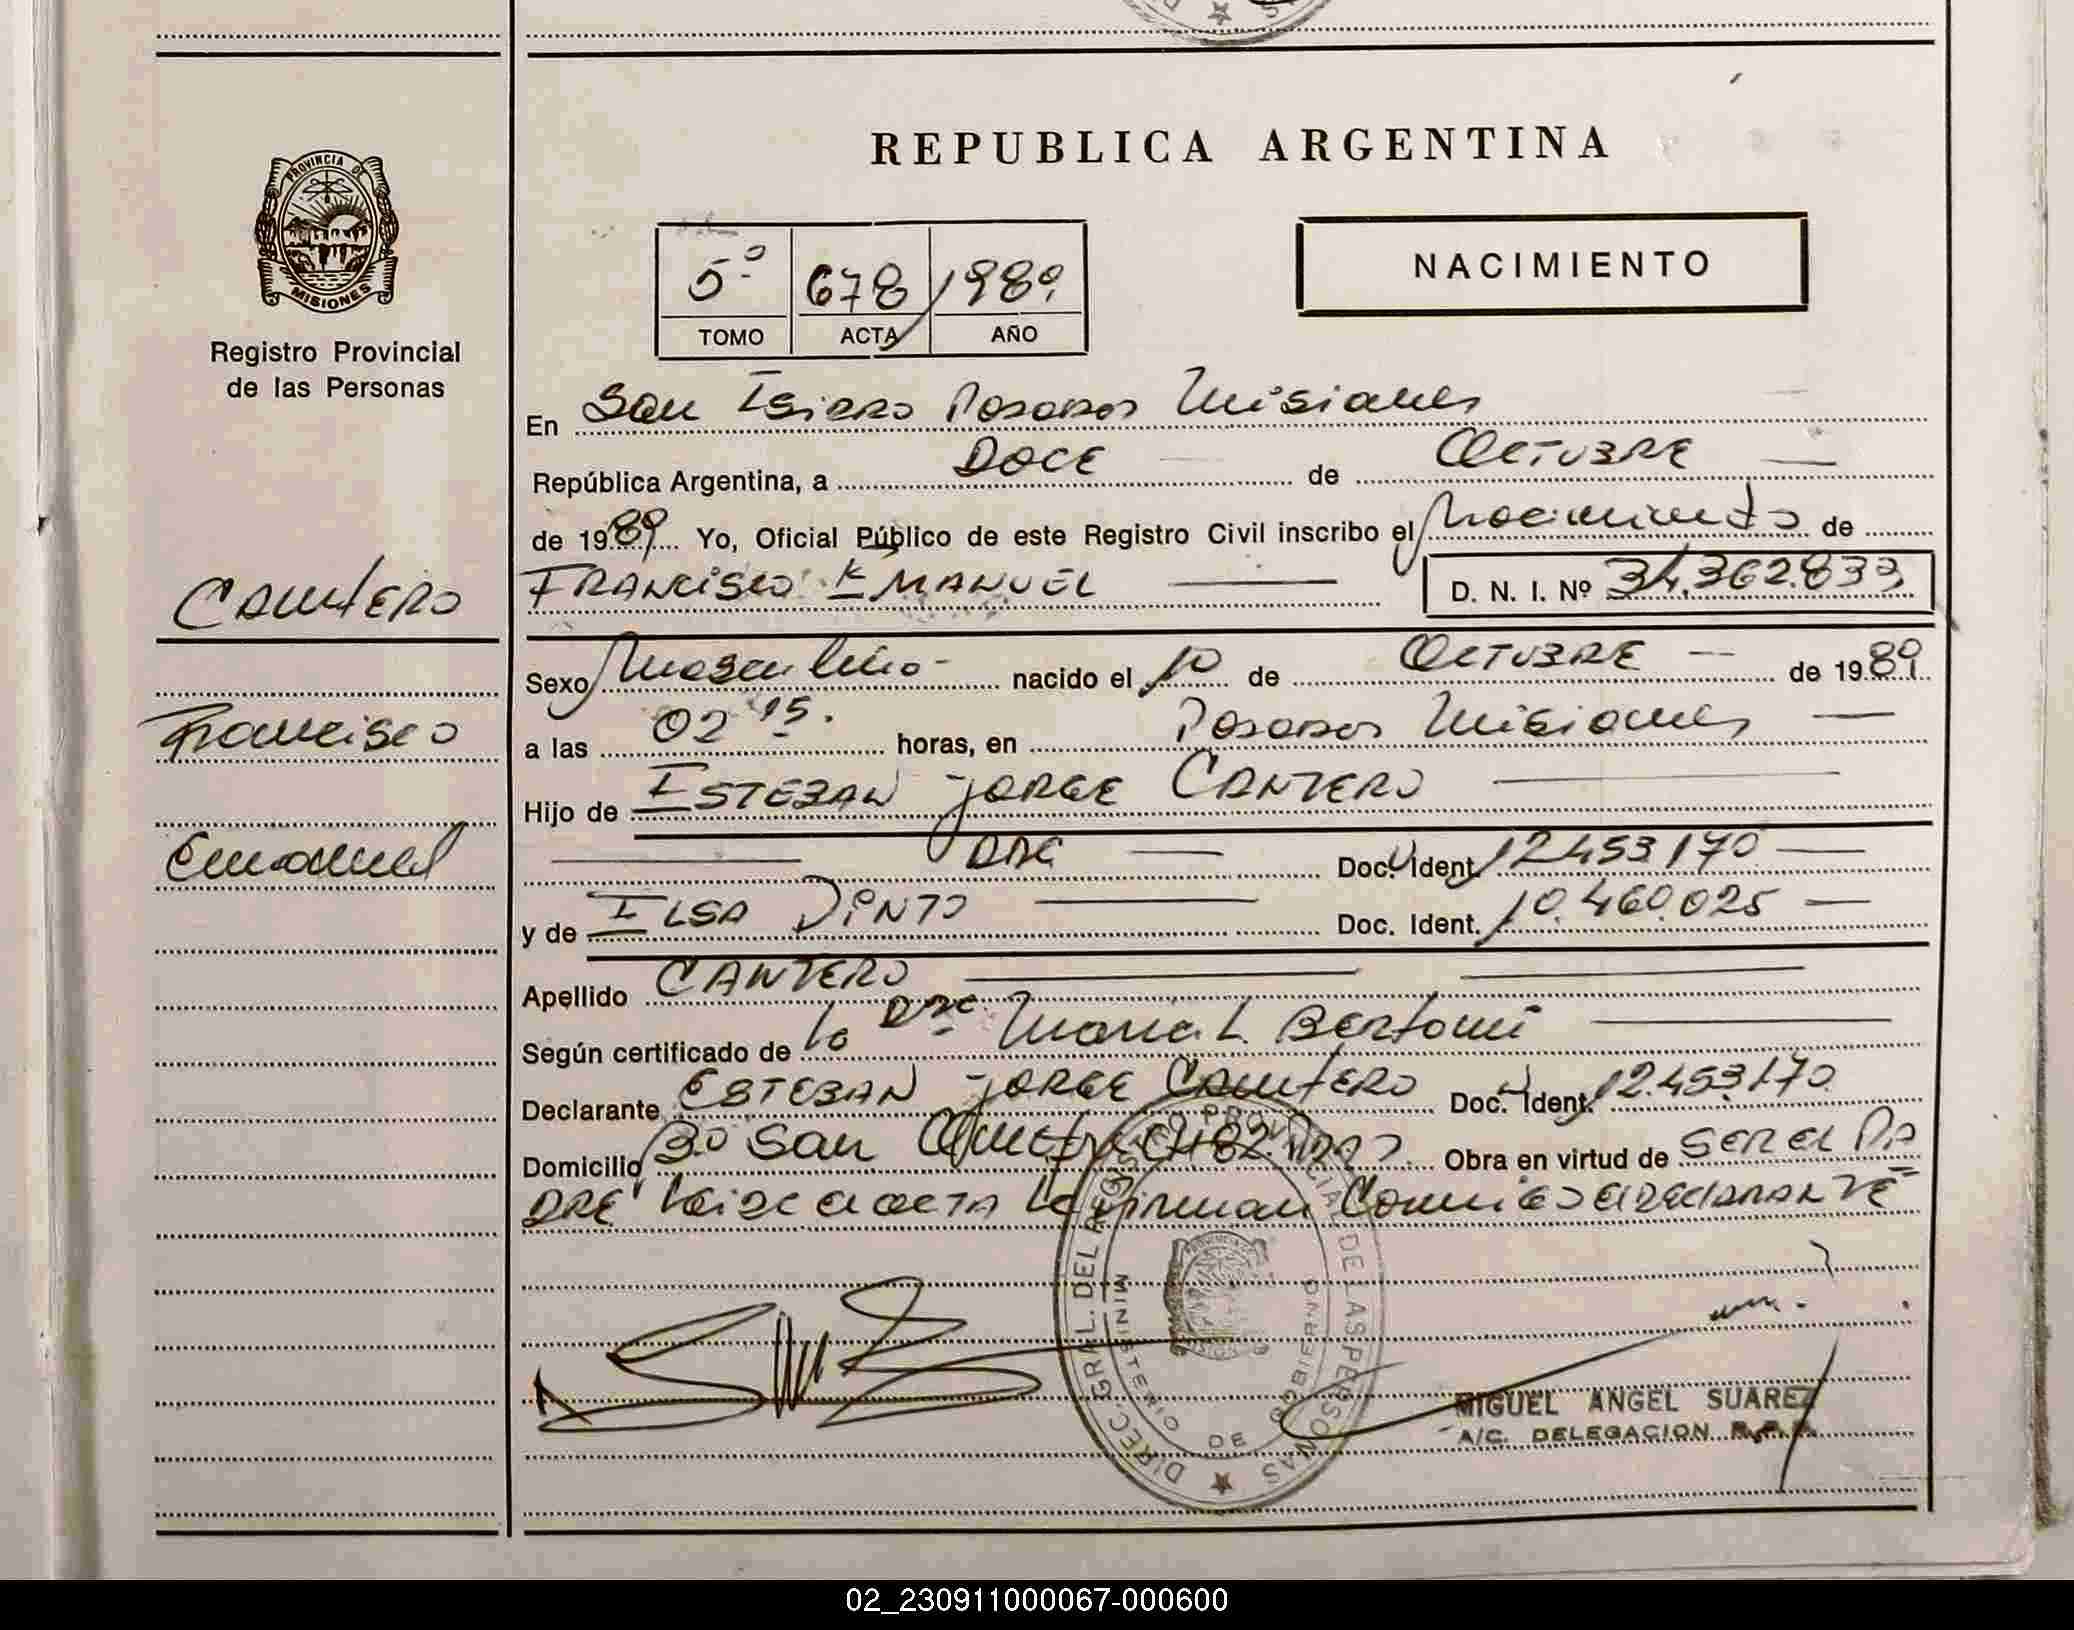 REPUBLICA ARGENTINA
PROVINCIA DE
MISIONES
Registro Provincial
de las Personas
5º 678 1989
TOMO ACTA AÑO
NACIMIENTO
En San Isidro Posadas Misiones
República Argentina, a DOCE de OCTUBRE
de 1989 Yo, Oficial Público de este Registro Civil inscribo el Nacimiento de
CANTERO
FRANCISCO EMANUEL D. N. I. Nº 34.362.833
Sexo Masculino nacido el 10 de OCTUBRE de 1989
Francisco
a las 02 15. horas, en Posadas Misiones
Hijo de ESTEBAN JORGE CANTERO
Emanuel
Doc. Ident. 12.453.170
y de ELSA PINTO Doc. Ident. 10.460.025
Apellido CANTERO
Según certificado de la Maria L. Bertoni
Declarante ESTEBAN JORGE CANTERO Doc. Ident. 12.453.170
Domicilio Bº San Obra en virtud de SER EL PA
DRE el acta la firman el DECLARANTE
DIREC. GRAL. DEL REGISTRO PROVINCIAL DE LAS PERSONAS
MINISTERIO DE GOBIERNO
MIGUEL ANGEL SUAREZ
A/C. DELEGACION R.P.P.
02_230911000067-000600